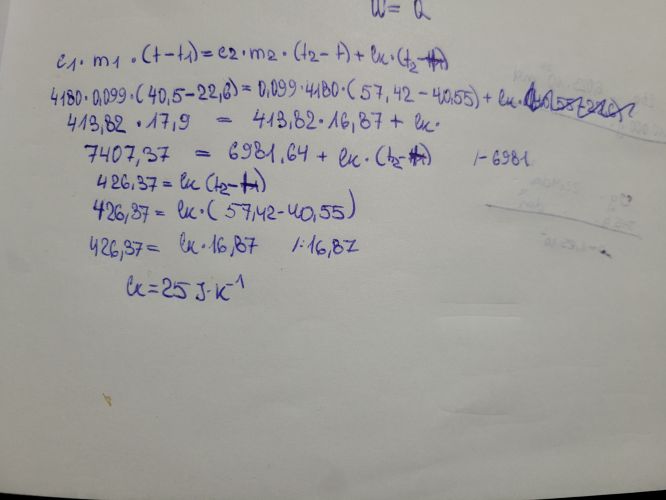 W = Q
c1 · m1 · (t-t1) = c2 · m2 · (t2-t) + Ck · (t2-t)
4180 · 0,099 · (40,5-22,6) = 0,099 · 4180 · (57,42-40,55) + Ck ·
413,82 · 17,9 = 413,82 · 16,87 + Ck ·
7407,37 = 6981,64 + Ck · (t2-t) /-6981
426,37 = Ck (t2-t)
426,37 = Ck · (57,42-40,55)
426,37 = Ck · 16,87 /:16,87
Ck = 25 J · K⁻¹